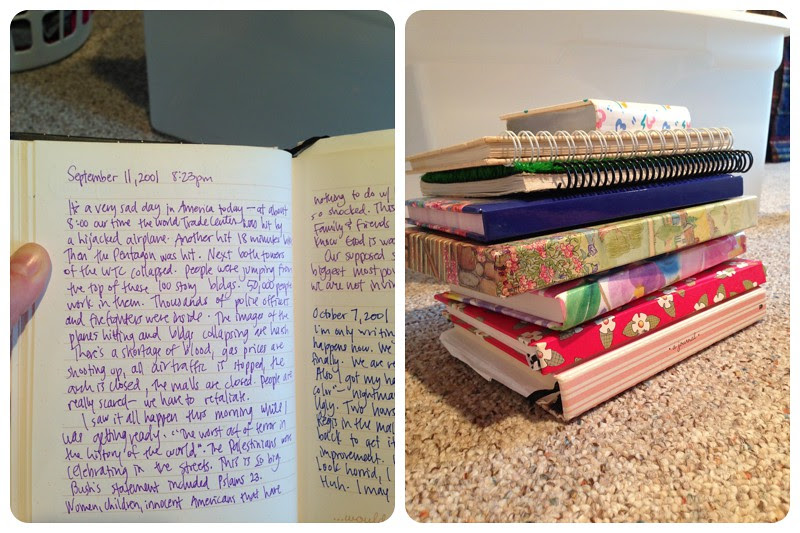 September 11, 2001 8:23pm
It's a very sad day in America today — at about
8:00 our time the world Trade Center was hit by
a hijacked airplane. Another hit 18 minutes later
Then the Pentagon was hit. Next both towers
of the WTC collapsed. People were jumping from
the top of these 100 story bldgs. 50,000 people
work in them. Thousands of police officers
and firefighters were inside. The images of the
planes hitting and bldgs collapsing are harsh
There's a shortage of blood, gas prices are
shooting up, all air traffic is stopped, the
arch is closed, the malls are closed. People are
really scared — we have to retaliate.
I saw it all happen this morning while I
was getting ready. "The worst act of terror in
the history of the world". The Palestinians were
celebrating in the streets. This is so big.
Bush's statement included Pslams 23.
Women, children, innocent Americans that have
nothing to do w/
so shocked. This
Family & Friends
know. God is
Our supposed
biggest most
we are not
October 7, 2001
I'm only
happens now. We
finally. We are
Also I got my
color" - nightmar
Ugly. Two
Regis in the mall
back to get it
improvement.
Look horrid, I
Huh. I may